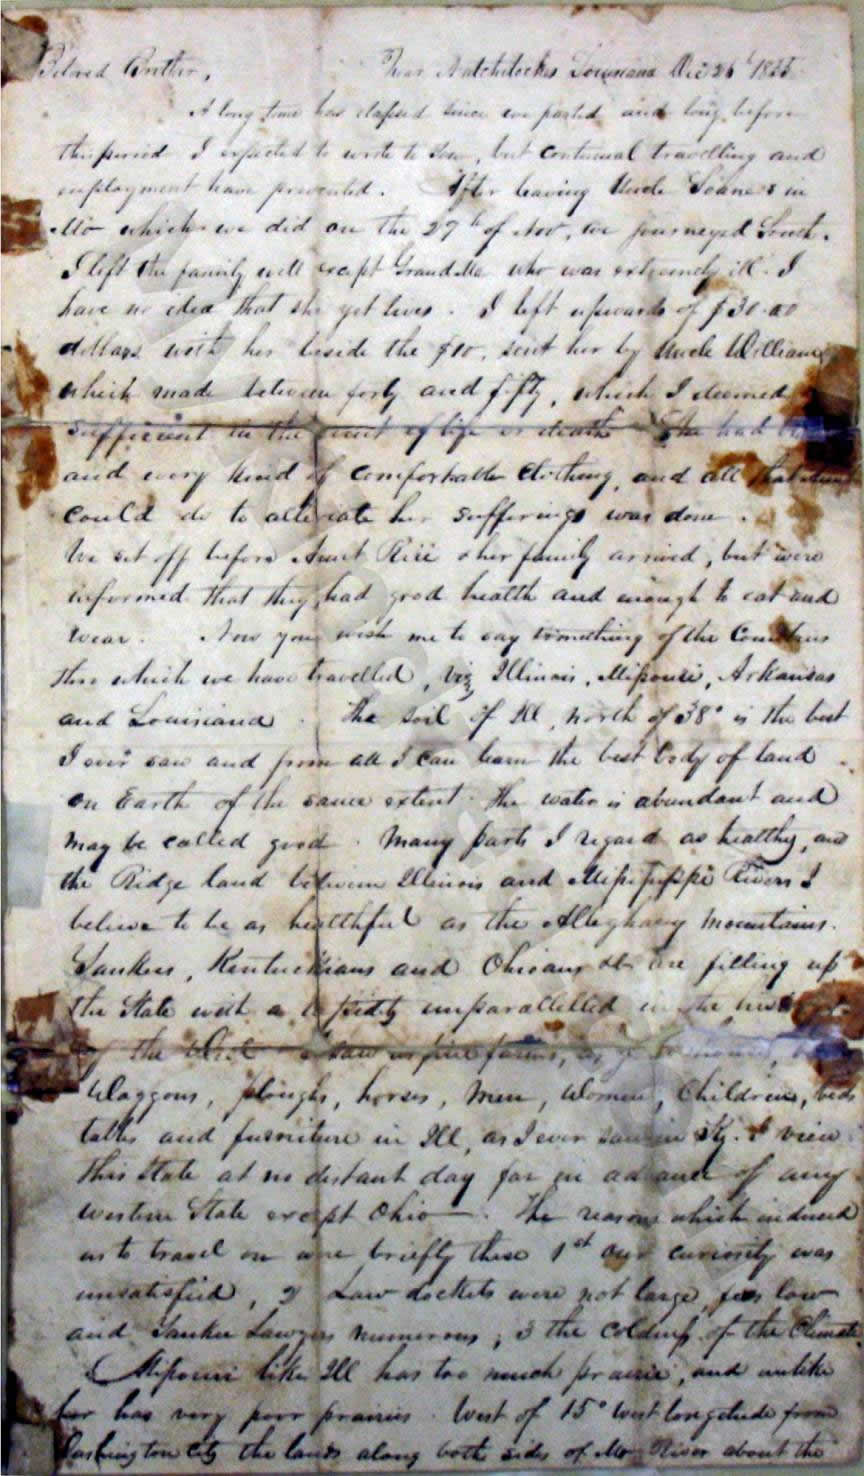 Beloved Brother, Near Natchitoches Louisiana Dec 26th
A long time has elapsed since we parted and long before
this period I expected to write to you, but continual travelling and
employment have prevented. After leaving Uncle Sloane's in
Mo which we did on the 27th of Nov, we journeyed South.
I left the family well except Grand Ma who was extremely ill. I
have no idea that she yet lives. I left upwards of $30.00
dollars with her beside the $10, sent her by Uncle William
which made between forty and fifty, which I deemed
sufficient in the event of life or death She had
and every kind of comfortable clothing, and all that
could do to alleviate her sufferings was done.
We set off before Aunt & her family arrived, but were
informed that they had good health and enough to eat and
wear. Now you wish me to say something of the Countries
thro which we have travelled, viz Illinois, Missouri, Arkansas
and Louisiana. The soil of Ill, north of 38° is the best
I ever saw and from all I can learn the best body of land
on Earth of the same extent. The water is abundant and
may be called good. Many parts I regard as healthy, and
the Ridge land between Illinois and Mississippi Rivers I
believe to be as healthful as the Alleghany Mountains.
Yankees, Kentuckians and Ohioans are filling up
the State with a rapidity unparallelled in the
of the West I saw as fine farms, as
Waggons, ploughs, horses, men, women, children, beds
tables and furniture in Ill, as I ever saw in Ky. I view
this State at no distant day far in advance of any
western State except Ohio. The reasons which induced
us to travel on were briefly these 1st our curiosity was
unsatisfied, 2 Law dockets were not large, fees low
and Yankee Lawyers numerous; 3 the coldness of the Climate.
Missouri like Ill has too much prairie, and unlike
her has very poor prairies. West of 15° west longitude from
Washington City the lands along both sides of Mo River about the